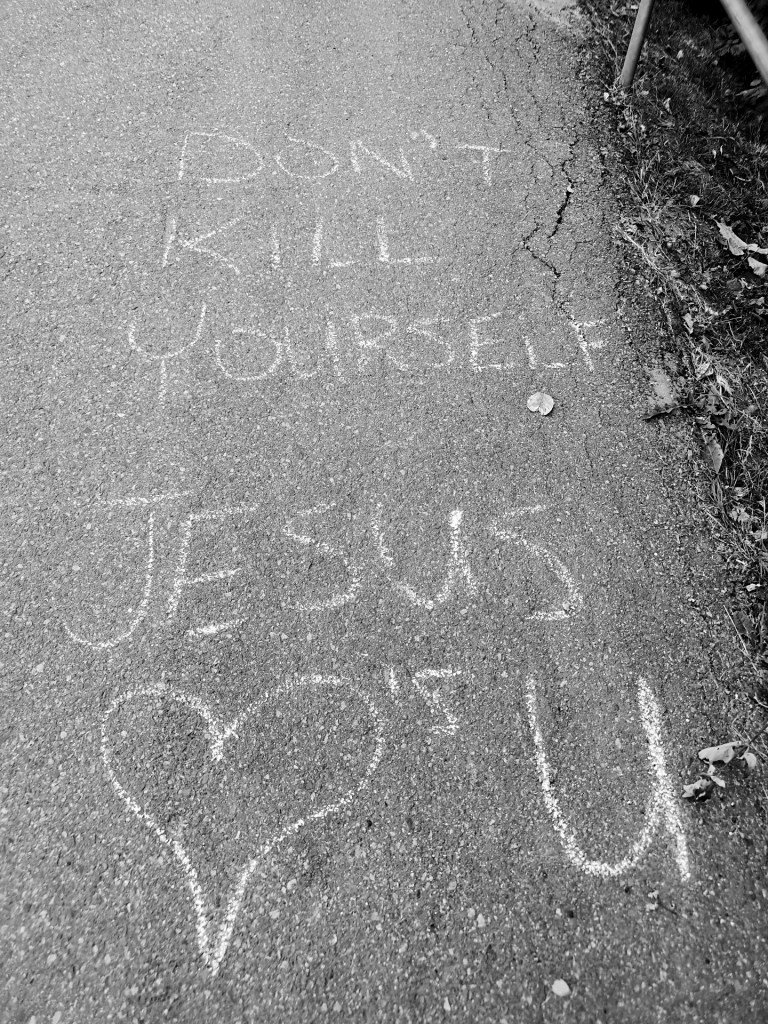 DON'T
KILL
YOURSELF
JESUS
♡'S U